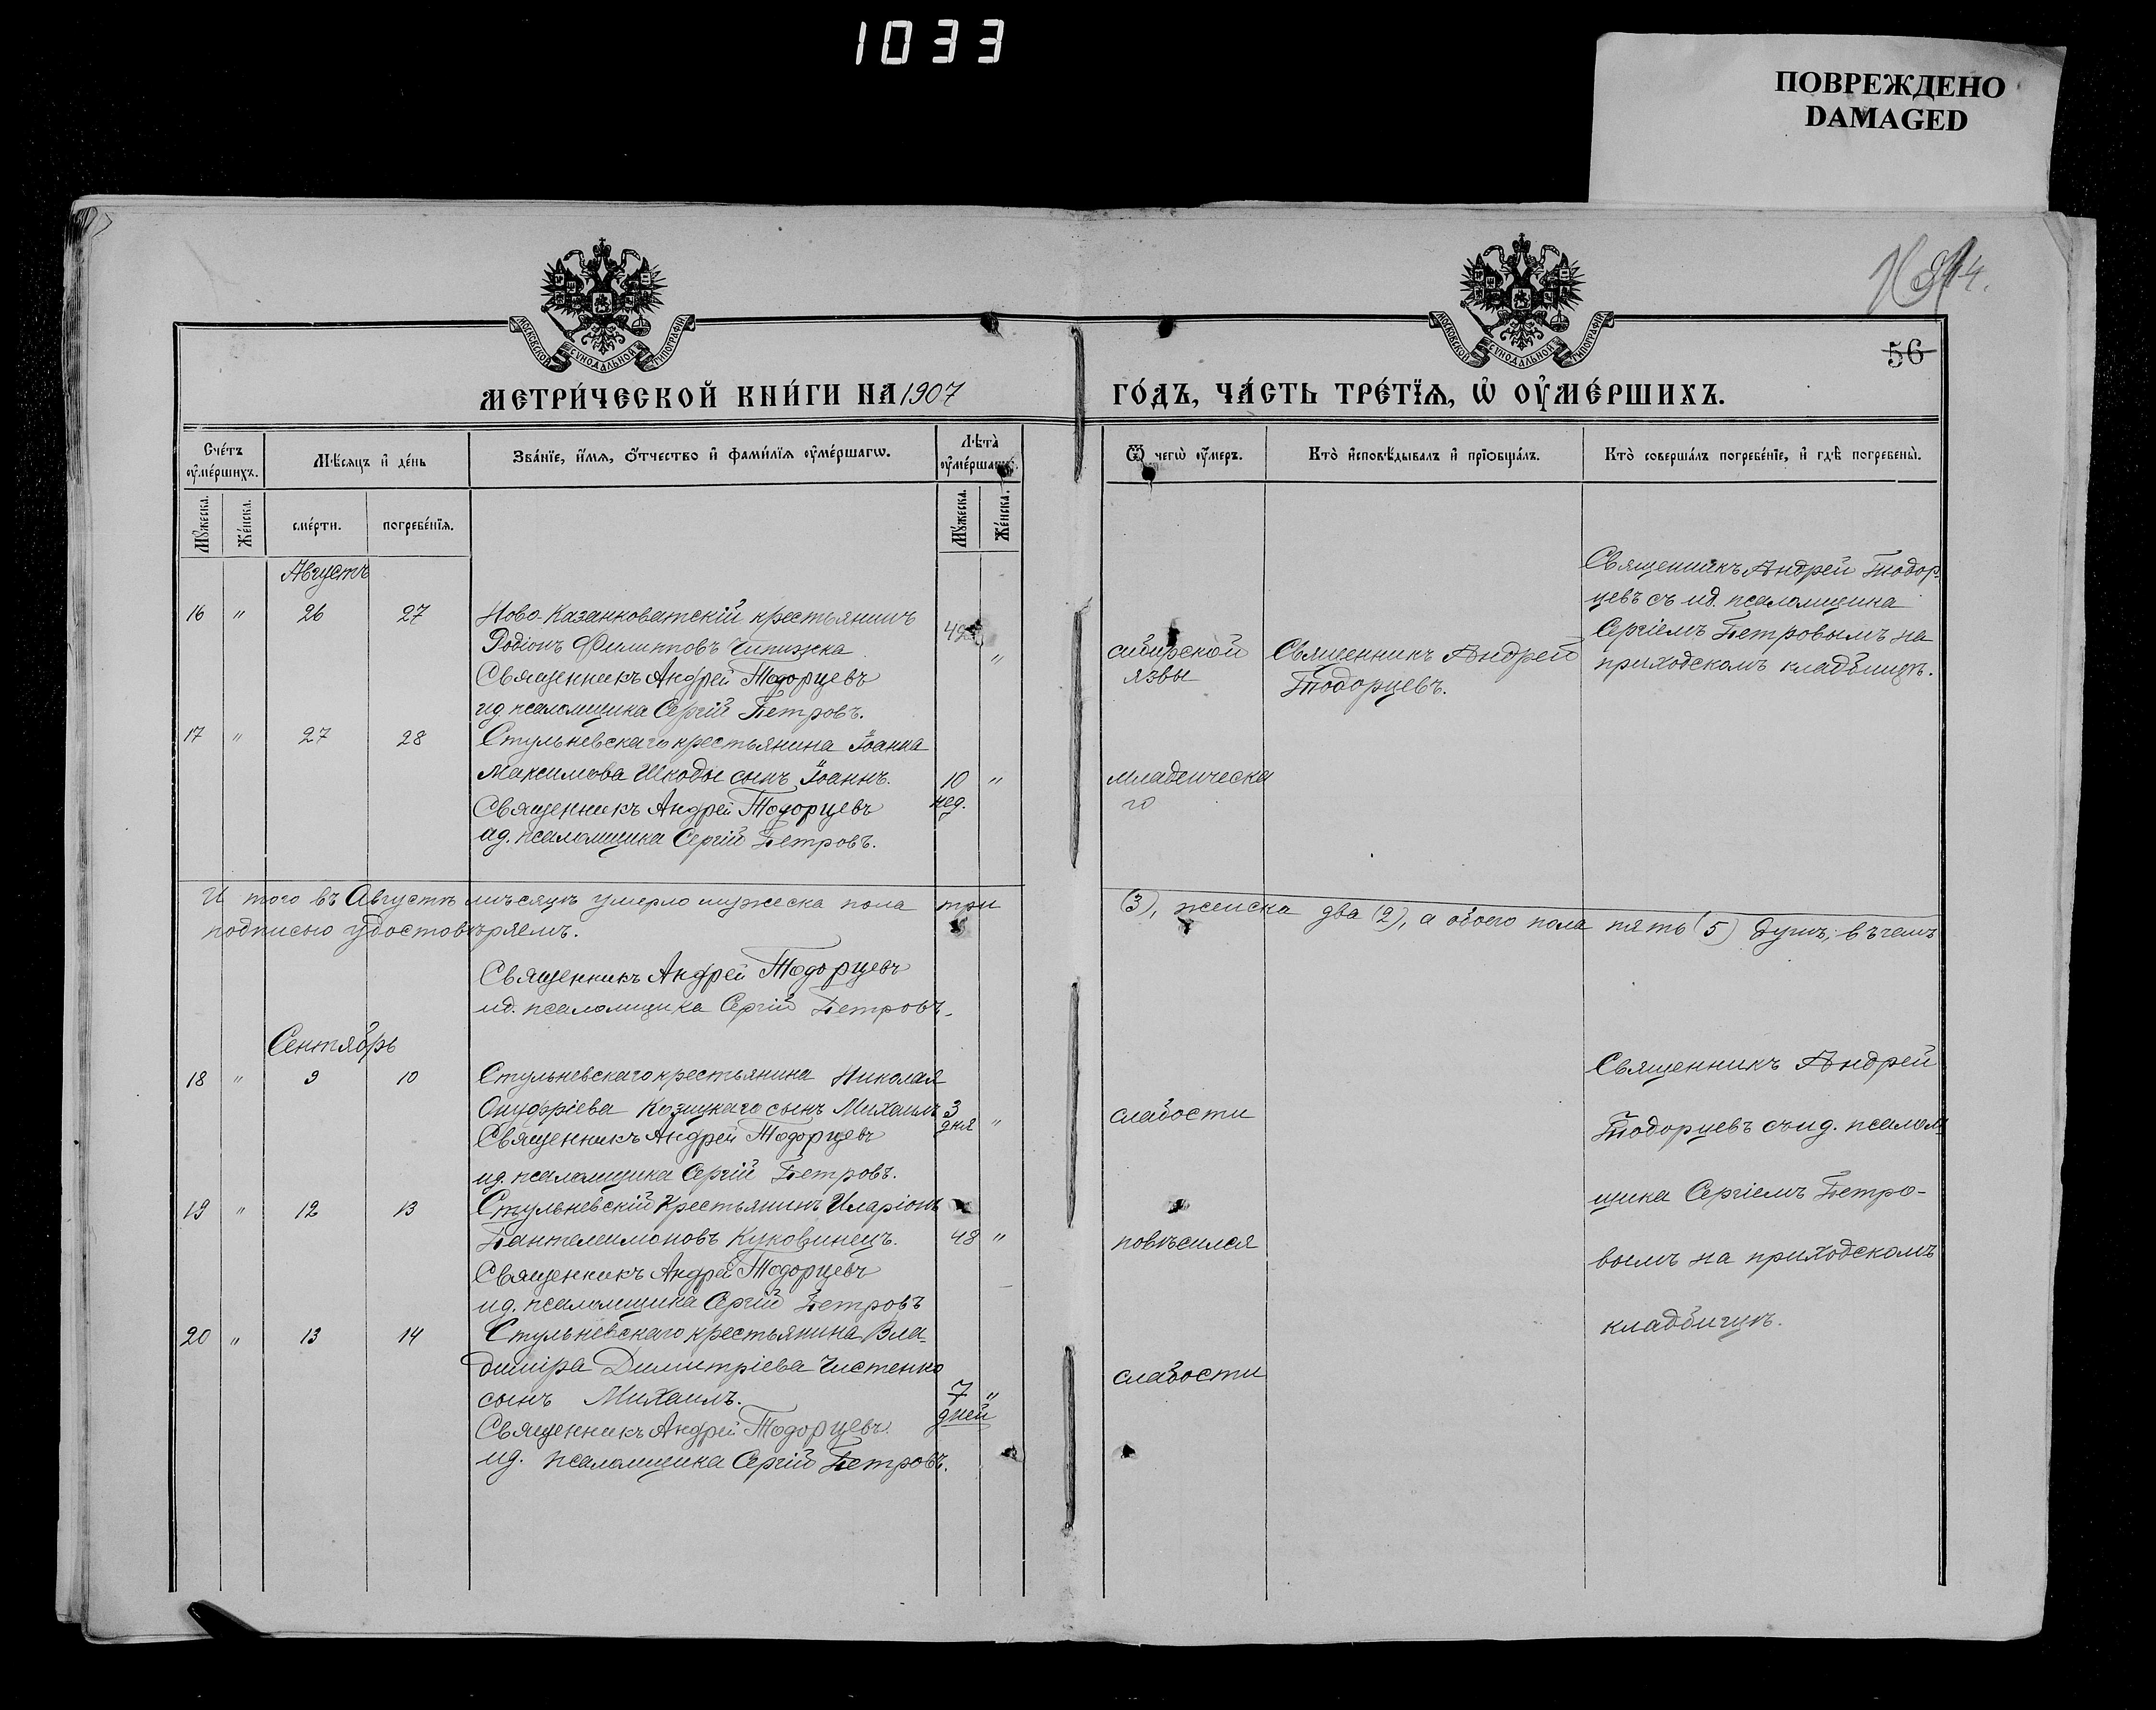 1033
ПОВРЕЖДЕНО
DAMAGED
МОСКОВСКОЙ СѴНОДАЛЬНОЙ ТИПОГРАФІИ
МОСКОВСКОЙ СѴНОДАЛЬНОЙ ТИПОГРАФІИ
56
МЕТРИ́ЧЕСКОЙ КНИ́ГИ НА 1907
ГО́ДЪ, ЧА́СТЬ ТРЕ́ТЇѦ, Ѡ҆ ОУ҆МЕ́РШИХЪ.
Сче́тъ оу҆ме́ршихъ.
Мѣ́сѧцъ и҆ де́нь
Зва́нїе, и҆́мѧ, ѻ҆́тчество и҆ фами́лїѧ оу҆ме́ршагѡ.
Лѣ́та̀ оу҆ме́ршагѡ.
Ѿ чегѡ̀ оу҆́меръ.
Кто̀ и҆сповѣ́дывалъ и҆ прїѡбща́лъ.
Кто̀ соверша́лъ погребе́нїе, и҆ гдѣ̀ погребены̀.
Мꙋ́жеска.
Же́нска.
сме́рти.
погребе́нїѧ.
Мꙋ́жеска.
Же́нска.
Августъ
16 " 26 27 Ново-Казанковатскій крестьянинъ
Родіонъ Филипповъ Чипижка "
Священникъ Андрей Тодорцевъ
ид. псаломщика Сергій Петровъ.
сибирской
язвы
Священникъ Андрей
Тодорцевъ.
Священникъ Андрей Тодор-
цевъ съ ид. псаломщика
Сергіемъ Петровымъ на
приходскомъ кладбищѣ.
17 " 27 28 Стульневскаго крестьянина Іоанна
Максимова Шкоды сынъ Іоаннъ. 10 "
нед.
Священникъ Андрей Тодорцевъ
ид. псаломщика Сергій Петровъ.
младенческа
го
И того въ Августѣ мѣсяцѣ умерло мужеска пола три (3), женска два (2), а обоего пола пять (5) душъ; въ чемъ
подписью удостовѣряемъ.
Священникъ Андрей Тодорцевъ
ид. псаломщика Сергій Петровъ.
Сентябрь
18 " 9 10 Стульневскаго крестьянина Николая
Онуфріева Козицкаго сынъ Михаилъ 3
дня "
Священникъ Андрей Тодорцевъ
ид. псаломщика Сергій Петровъ.
слабости
Священникъ Андрей
Тодорцевъ съ ид. псалом-
щика Сергіемъ Петро-
вымъ на приходскомъ
кладбищѣ.
19 " 12 13 Стульневскій Крестьянинъ Иларіонъ
Пантелеимоновъ Куковинецъ. 48 "
Священникъ Андрей Тодорцевъ
ид. псаломщика Сергій Петровъ
повѣсился
20 " 13 14 Стульневскаго крестьянина Вла-
диміра Димитріева Чистенко
сынъ Михаилъ. 7 "
дней
Священникъ Андрей Тодорцевъ.
ид. псаломщика Сергій Петровъ.
слабости